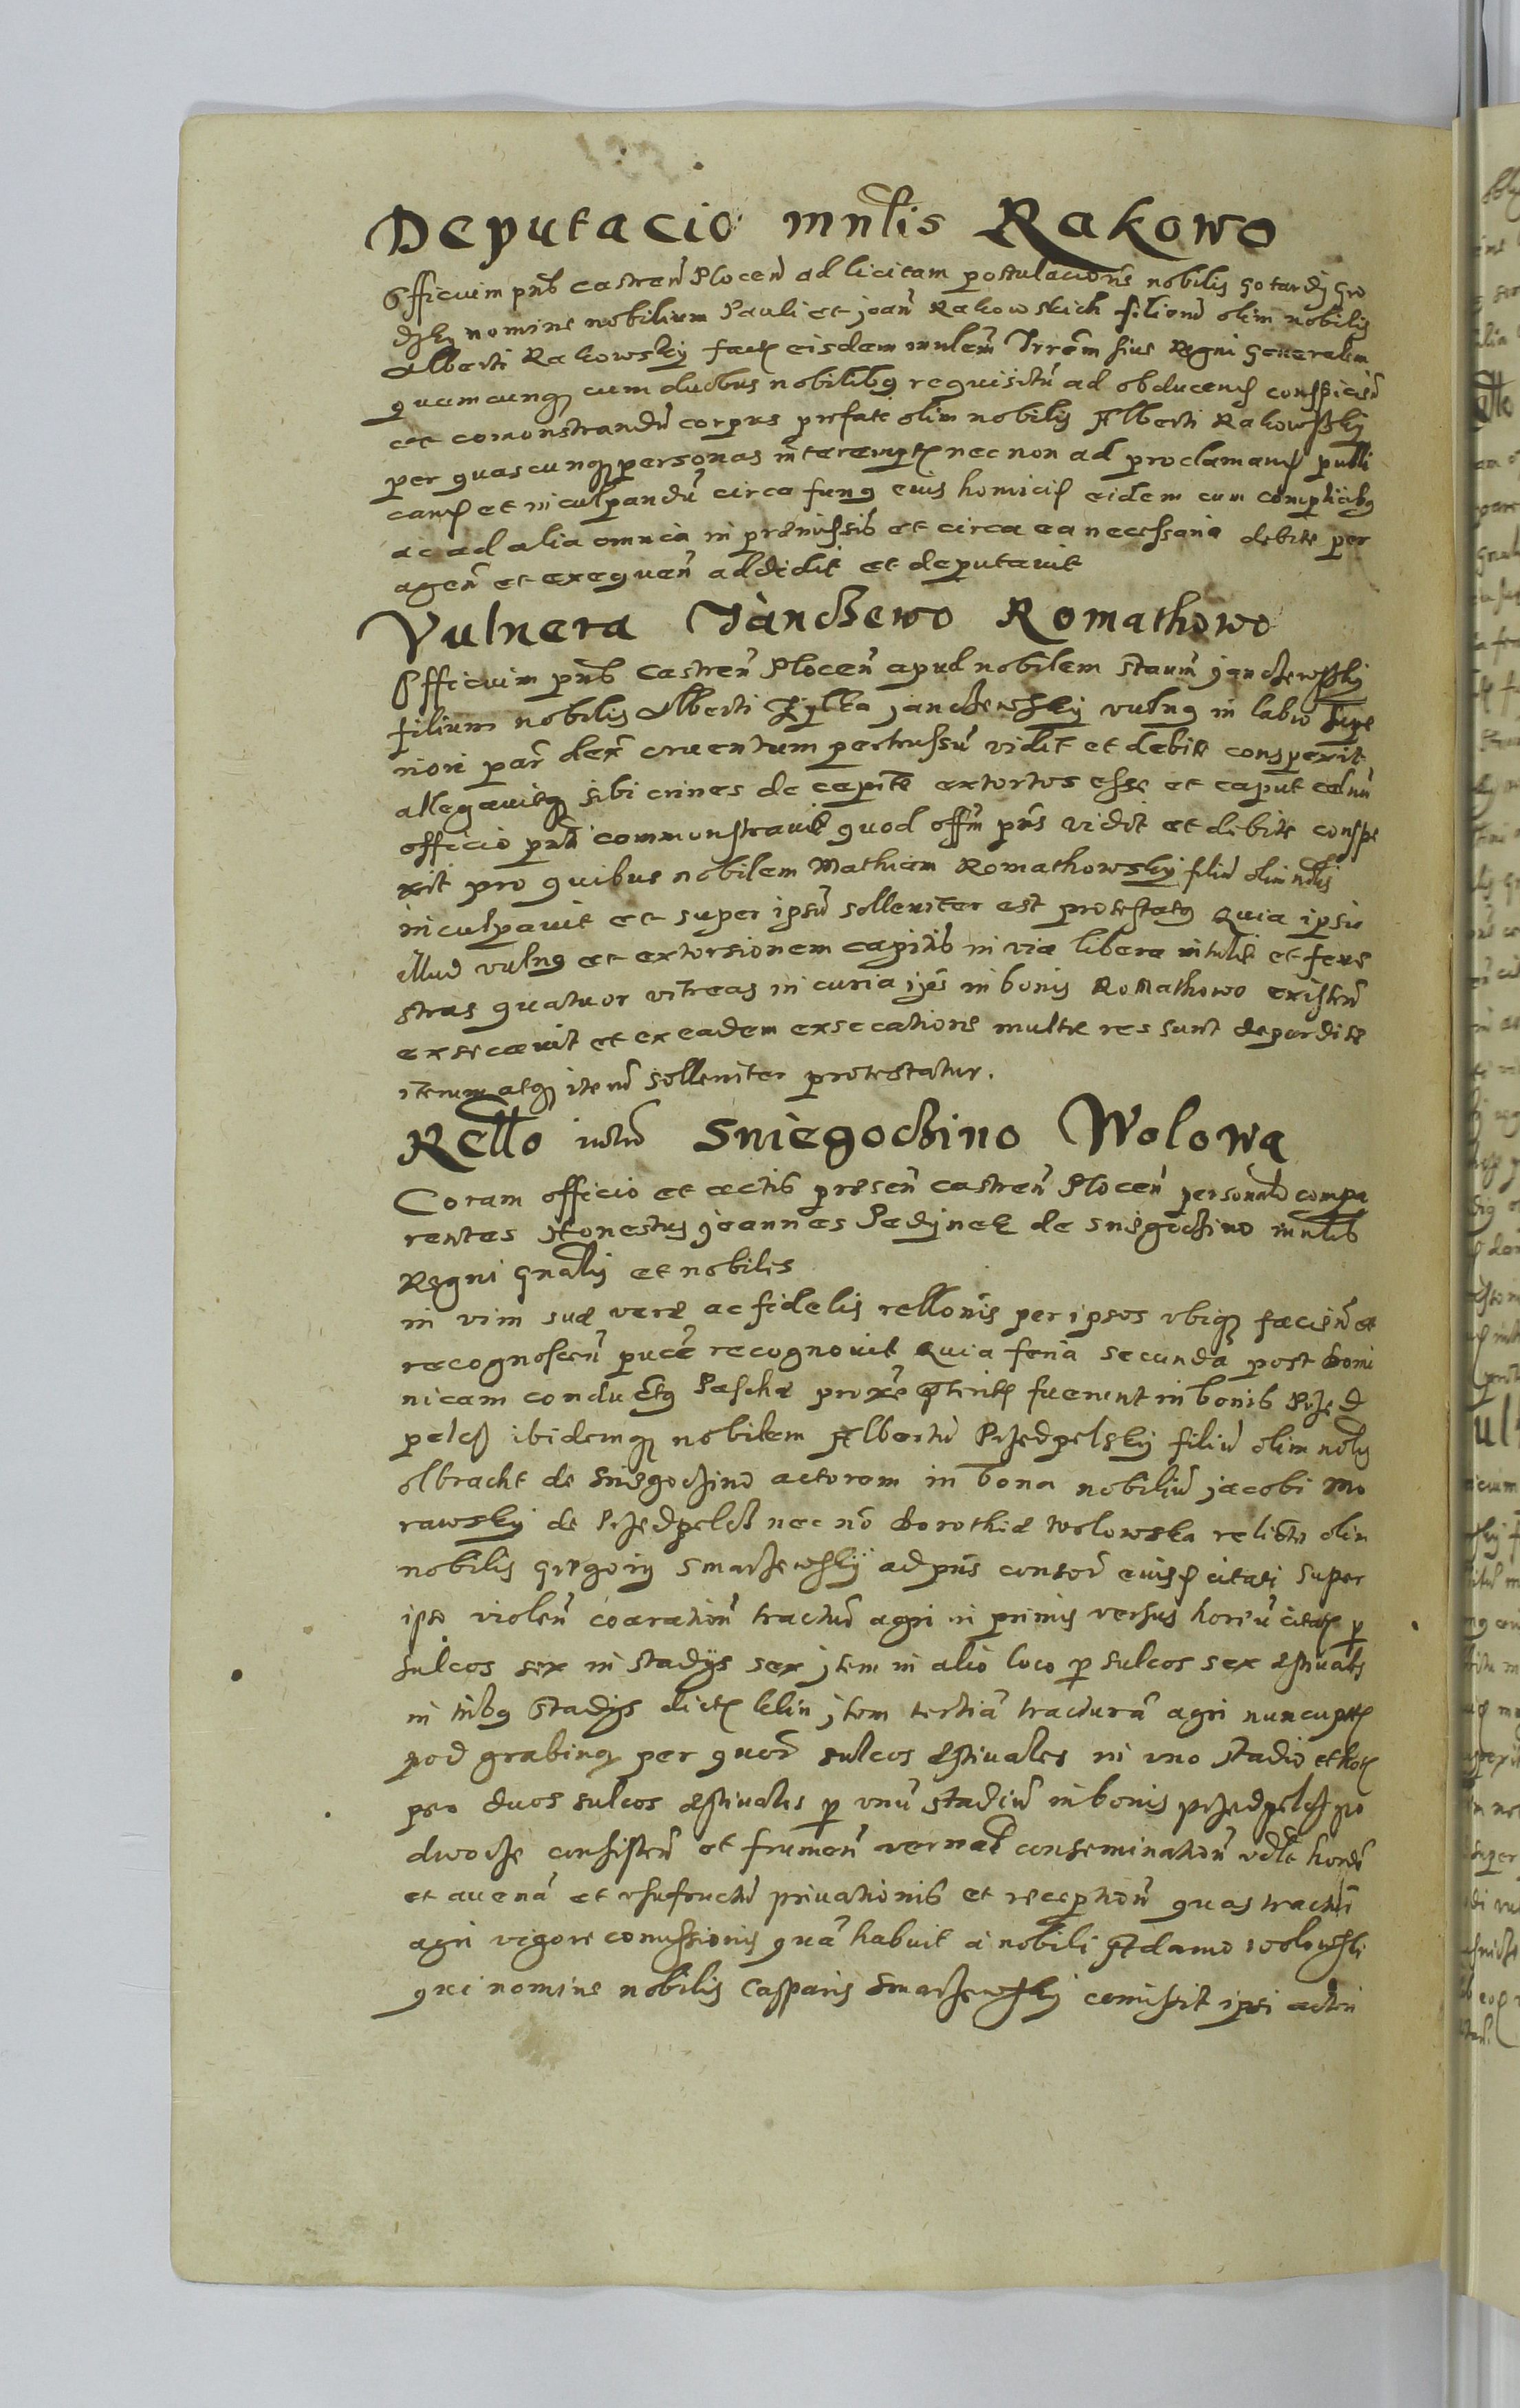 Deputacio mnlis Rakowo
Officium pñs castreñ Ploceñ ad licitam postulacionẽ nobilis Gotardj Gro
dzky nomine nobilium Pauli et joañ Rakowskich filiorũ olim nobilis
Alberti Rakowsky fact eisdem mnlem Trrem siue Regni Generalem
quemcunq cum duobus nobilibq requisitũ ad obducend conspiciẽ
et comonstrandũ corpus prefati olim nobilis Alberti Rakowsky
per quascunq personas interempt nec non ad proclamand publi
cand et inculpandũ circa funq eius homicid eidem cum complicibq
ac ad alia omnia in premissis et circa ea necessaria debite per
ageñ et exequeñ addidit et deputauit
Vulnera Janczewo Romathowo
Officium pñs Castreñ Ploceñ apud nobilem Stanũ janczewsky
filium nobilis Alberti Zylka janczewsky vulnq in labio supe
riori par dex cruentum pertussũ vidit et debite conspexit
allegauitq sibi crines de capite extortos esse et caput
officio pñti commonstrauit quod offm pñs vidit et debite conspe
xit pro quibus nobilem Mathiam Romathowsky filiũ olim nlis
inculpauit et super ipsũ solleniter est protestatq Quia ipse
illud vulnq et extorsionem capitis in via libera intulit et fene
stras quatuor vitreas in curia ipẽ in bonis Romathowo existeñ
exsecauit et ex eadem exsecatione multe res sunt deperdite
iterum atq iterũ solleniter protestatur.
Rello Sniegoczino Wolowa
Coram officio et actis preseñ castreñ Ploceñ personalr compa
rentes Honestus joannes Pedzinek de Sniegoczino mnlis
Regni gnalis et nobilis
in vim sue vere ac fidelis rellonis per ipsos vbiq facieñ et
recognosceñ puce recognouit Quia feria secunda post Domi
nicam conductq Pasche proxe pterit fuerunt in bonis Przed
pelcz ibidemq nobilem Albertũ Przedpelsky filiũ olim nolis
olbracht de Sniegoczino actorem in bona nobiliũ jacobi Mo
rawsky de Przedpelcz nec nõ Dorothie Wolowska relicte olim
nobilis Gregorij Smarzewsky ad pñs consor eiusd citati super
ipso violeñ coarationẽ tractuũ agri in primis versus horeũ citat p
sulcos sex in stadijs sex jtem in alio loco p sulcos sex estiuals
in tribq stadijs dict klin jtem tertiã tracturã agri nuncupat
pod grabinq per quor sulcos estiuales in vno stadio et
per duos sulcos estiuales p vnũ stadiũ in bonis przedpelcz po
dworze consisteñ et frumeñ vernal conseminationẽ vdlt hordẽ
et auenã et vsufructũ priuationis et receptionẽ quas tracturã
agri vigore comissionis quã habuit a nobili Adamo wolowski
qui nomine nobilis Casparis Smarzewsky comisit ipsi actori